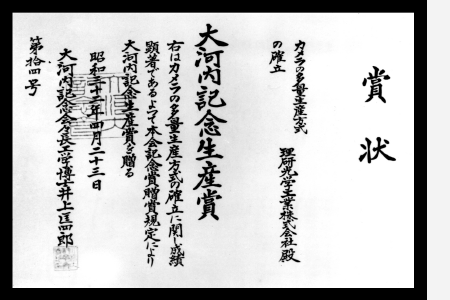 賞状
カメラの多量生産方式
の確立
理研光学工業株式会社殿
大河内記念生産賞
右はカメラの多量生産方式の確立に関し成績
顕著であるよつて本会記念賞贈賞規定により
大河内記念生産賞を贈る
昭和三十三年四月二十三日
大河内記念会々長工学博士井上匡四郎
第拾四号